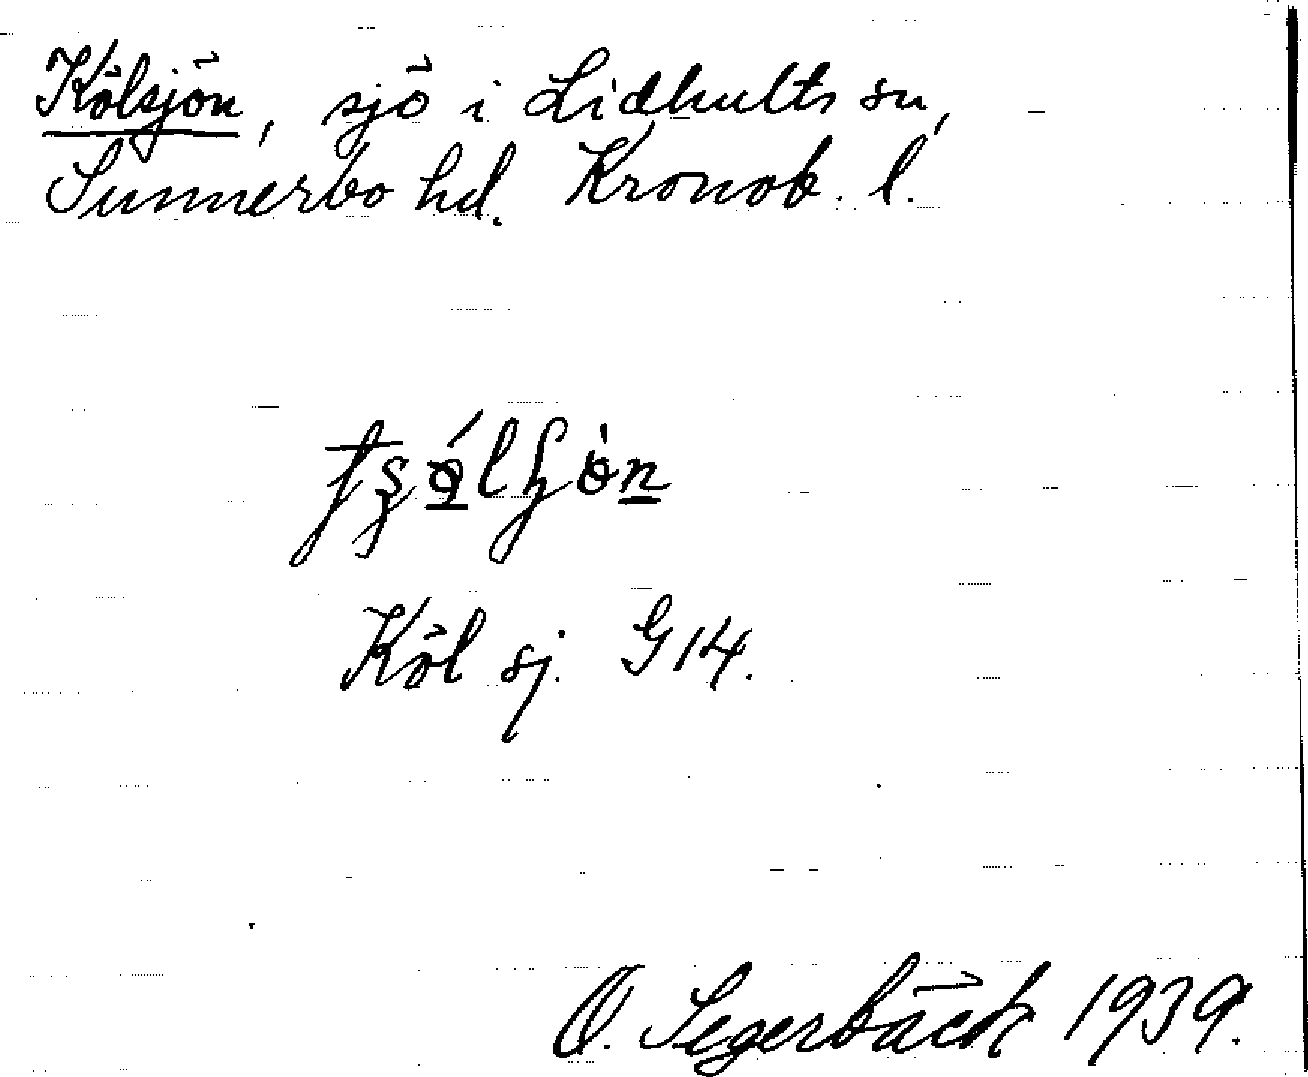 Kölsjön, sjö i Lidhults sn,
Sunnerbo hd. Kronob. l.
Köl sj. G 14.
O. Segerbäck 1939.